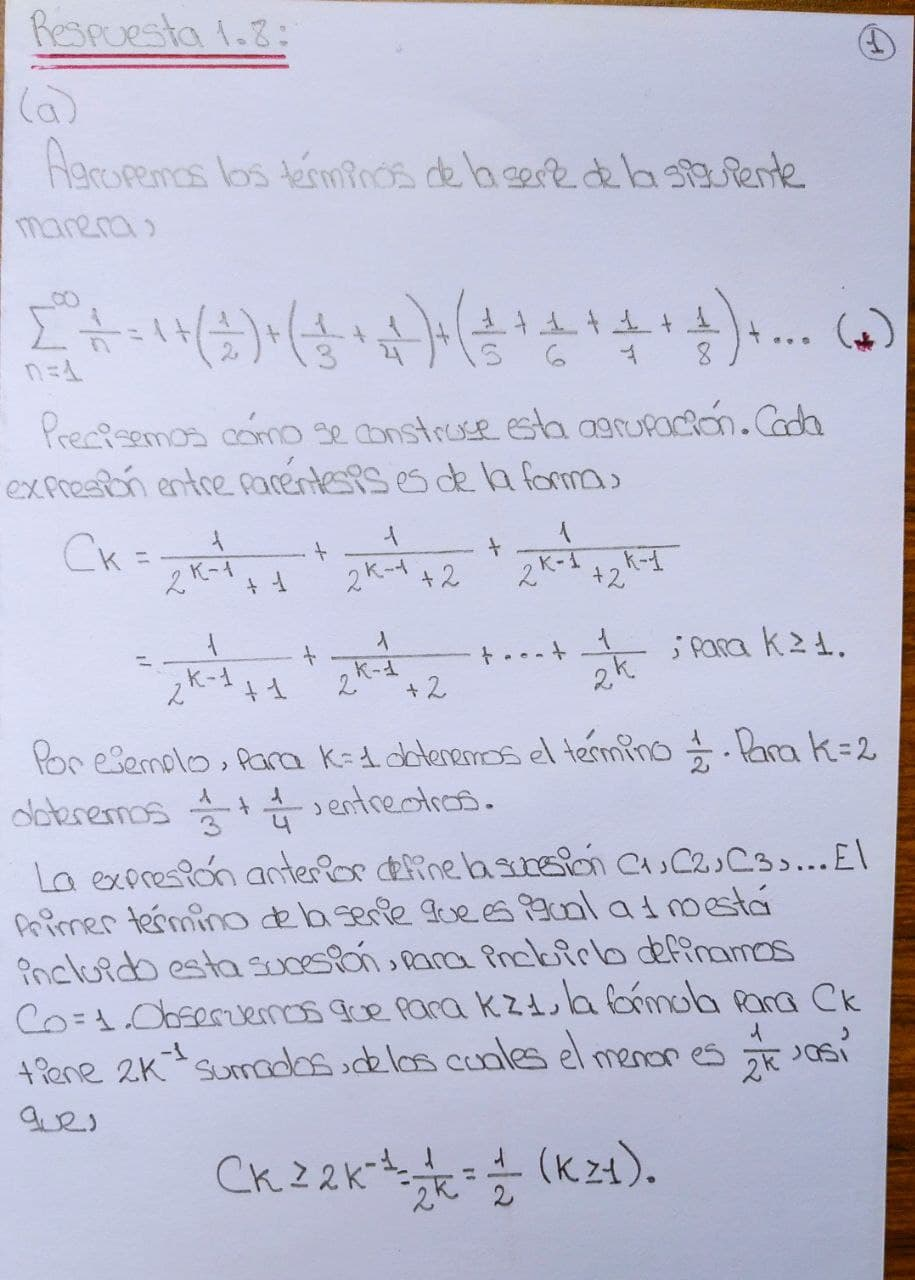 Respuesta 1.8:
①
(a)
Agrupemos los términos de la serie de la siguiente
manera,
∑_{n=1}^{∞} 1/n = 1 + (1/2) + (1/3 + 1/4) + (1/5 + 1/6 + 1/7 + 1/8) + ... (*)
Precisemos cómo se construye esta agrupación. Cada
expresión entre paréntesis es de la forma,
Ck = 1/(2^{k-1} + 1) + 1/(2^{k-1} + 2) + 1/(2^{k-1} + 2^{k-1})
= 1/(2^{k-1} + 1) + 1/(2^{k-1} + 2) + ... + 1/2^k ; para k ≥ 1.
Por ejemplo, para k=1 obtenemos el término 1/2. Para k=2
obtenemos 1/3 + 1/4, entre otros.
La expresión anterior define la sucesión C1, C2, C3, ... El
primer término de la serie que es igual a 1 no está
incluido esta sucesión, para incluirlo definamos
C0 = 1. Observemos que para k ≥ 1, la fórmula para Ck
tiene 2k^{-1} sumados, de los cuales el menor es 1/2k, así
que,
Ck ≥ 2k^{-1} - 1/2k = 1/2 (k ≥ 1).